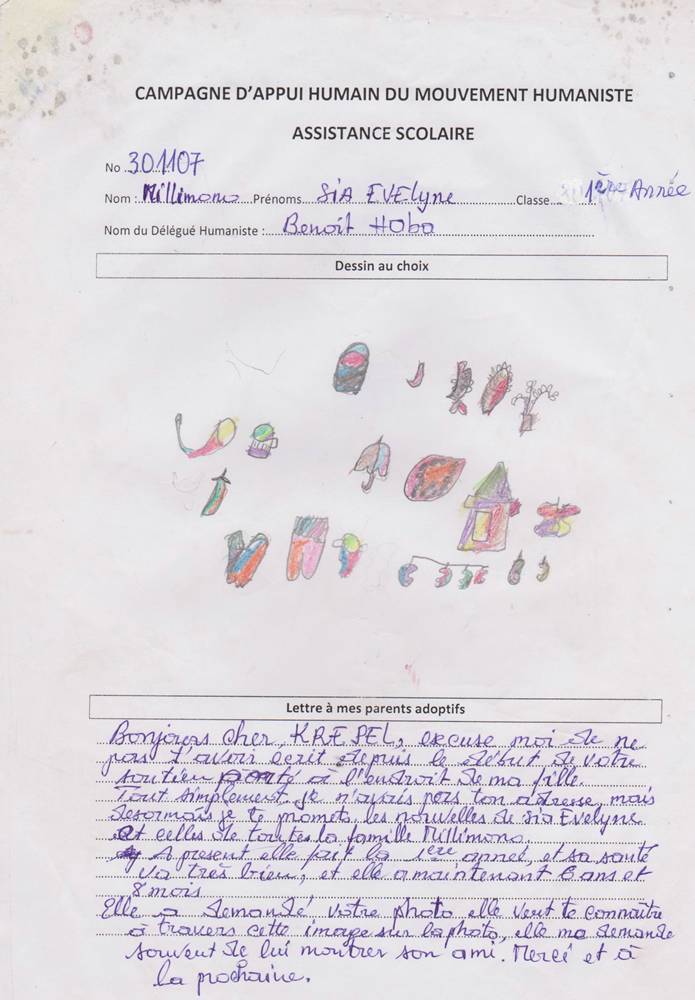 CAMPAGNE D'APPUI HUMAIN DU MOUVEMENT HUMANISTE
ASSISTANCE SCOLAIRE
No 301107
Nom : Millimono Prénoms SiA EVElyne Classe 1ère Année
Nom du Délégué Humaniste : Benoit Hobo
Dessin au choix
Lettre à mes parents adoptifs
Bonjours cher, KREPEL, excuse moi de ne
pas t'avoir écrit depuis le début de votre
soutien porté à l'endroit de ma fille.
Tout simplement je n'avais pas ton adresse, mais
desormais je te promets les nouvelles de Sia Evelyne
et celles de toutes la famille Millimono.
A present elle fait la 1ère anneé, et sa santé
va très brien, et elle a maintenant 6 ans et
8 mois
Elle a demandé votre photo elle veut te connaître
à travers cette image sur la photo, elle me demande
souvent de lui montrer son ami. Mercé et à
la prochaine.